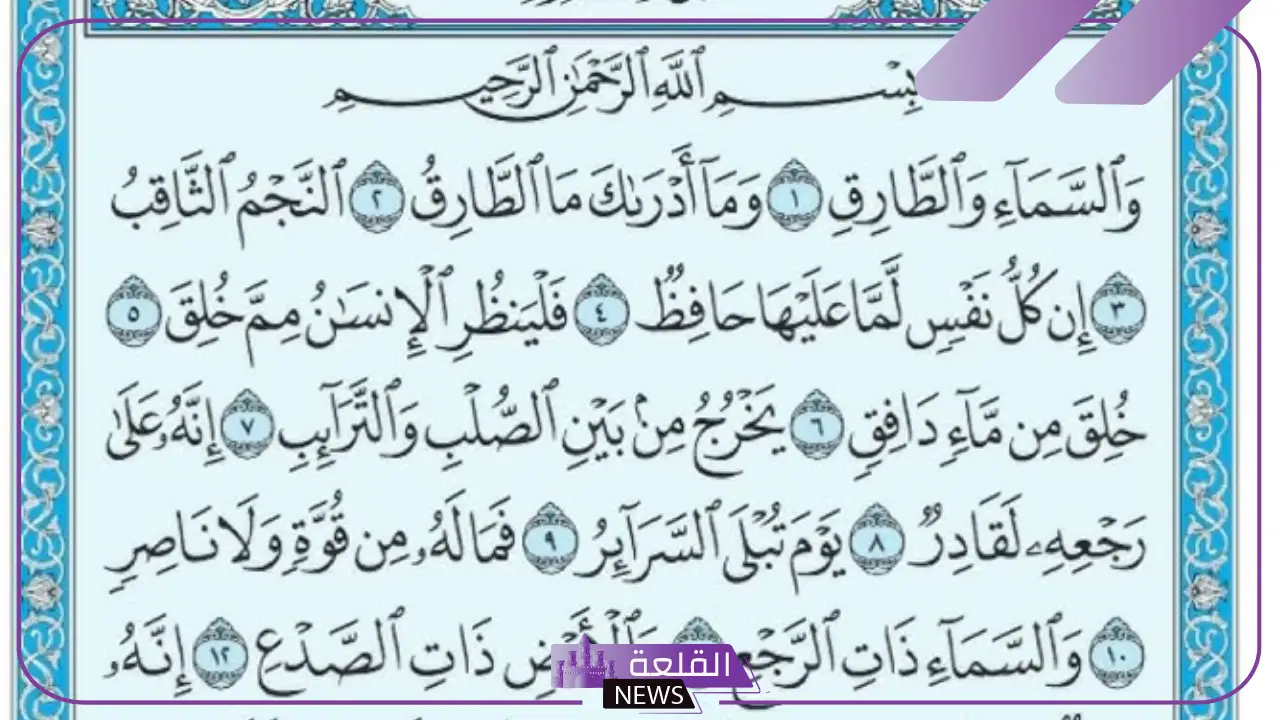 بِسْمِ ٱللَّهِ ٱلرَّحْمَٰنِ ٱلرَّحِيمِ
وَٱلسَّمَآءِ وَٱلطَّارِقِ ١ وَمَآ أَدْرَىٰكَ مَا ٱلطَّارِقُ ٢ ٱلنَّجْمُ ٱلثَّاقِبُ
٣ إِن كُلُّ نَفْسٍ لَّمَّا عَلَيْهَا حَافِظٌ ٤ فَلْيَنظُرِ ٱلْإِنسَٰنُ مِمَّ خُلِقَ ٥
خُلِقَ مِن مَّآءٍ دَافِقٍ ٦ يَخْرُجُ مِنۢ بَيْنِ ٱلصُّلْبِ وَٱلتَّرَآئِبِ ٧ إِنَّهُۥ عَلَىٰ
رَجْعِهِۦ لَقَادِرٌ ٨ يَوْمَ تُبْلَى ٱلسَّرَآئِرُ ٩ فَمَا لَهُۥ مِن قُوَّةٍ وَلَا نَاصِرٍ
١٠ وَٱلسَّمَآءِ ذَاتِ ٱلرَّجْعِ وَٱلْأَرْضِ ذَاتِ ٱلصَّدْعِ ١٢ إِنَّهُۥ
القلعة
NEWS